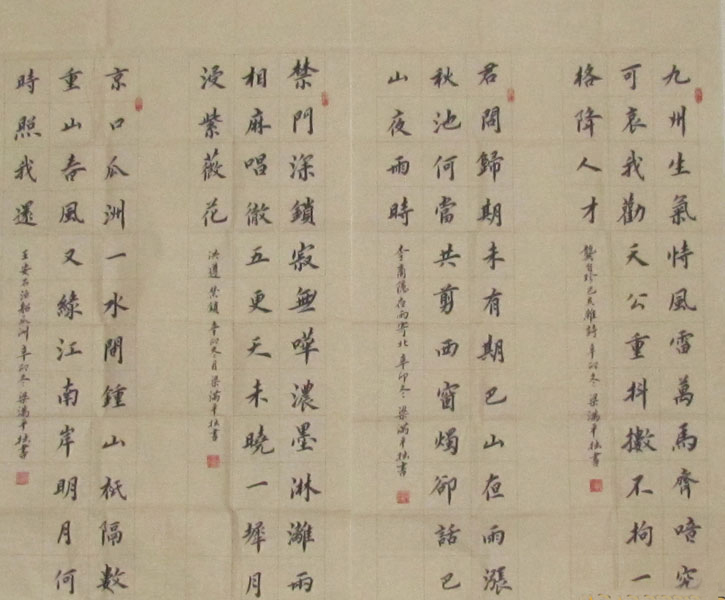 九州生氣恃風雷萬馬齊喑究
可哀我勸天公重抖擻不拘一
格降人才 龔自珍己亥雜詩 辛卯冬 梁滿平拙書
君問歸期未有期巴山夜雨漲
秋池何當共剪西窗燭卻話巴
山夜雨時 李商隱夜雨寄北 辛卯冬 梁滿平拙書
禁門深鎖寂無嘩濃墨淋灕兩
相麻唱徹五更天未曉一墀月
浸紫薇花 洪遵 禁鎖 辛卯冬月 梁滿平拙書
京口瓜洲一水間鍾山祇隔數
重山春風又綠江南岸明月何
時照我還 王安石泊船瓜洲 辛卯冬 梁滿平拙書